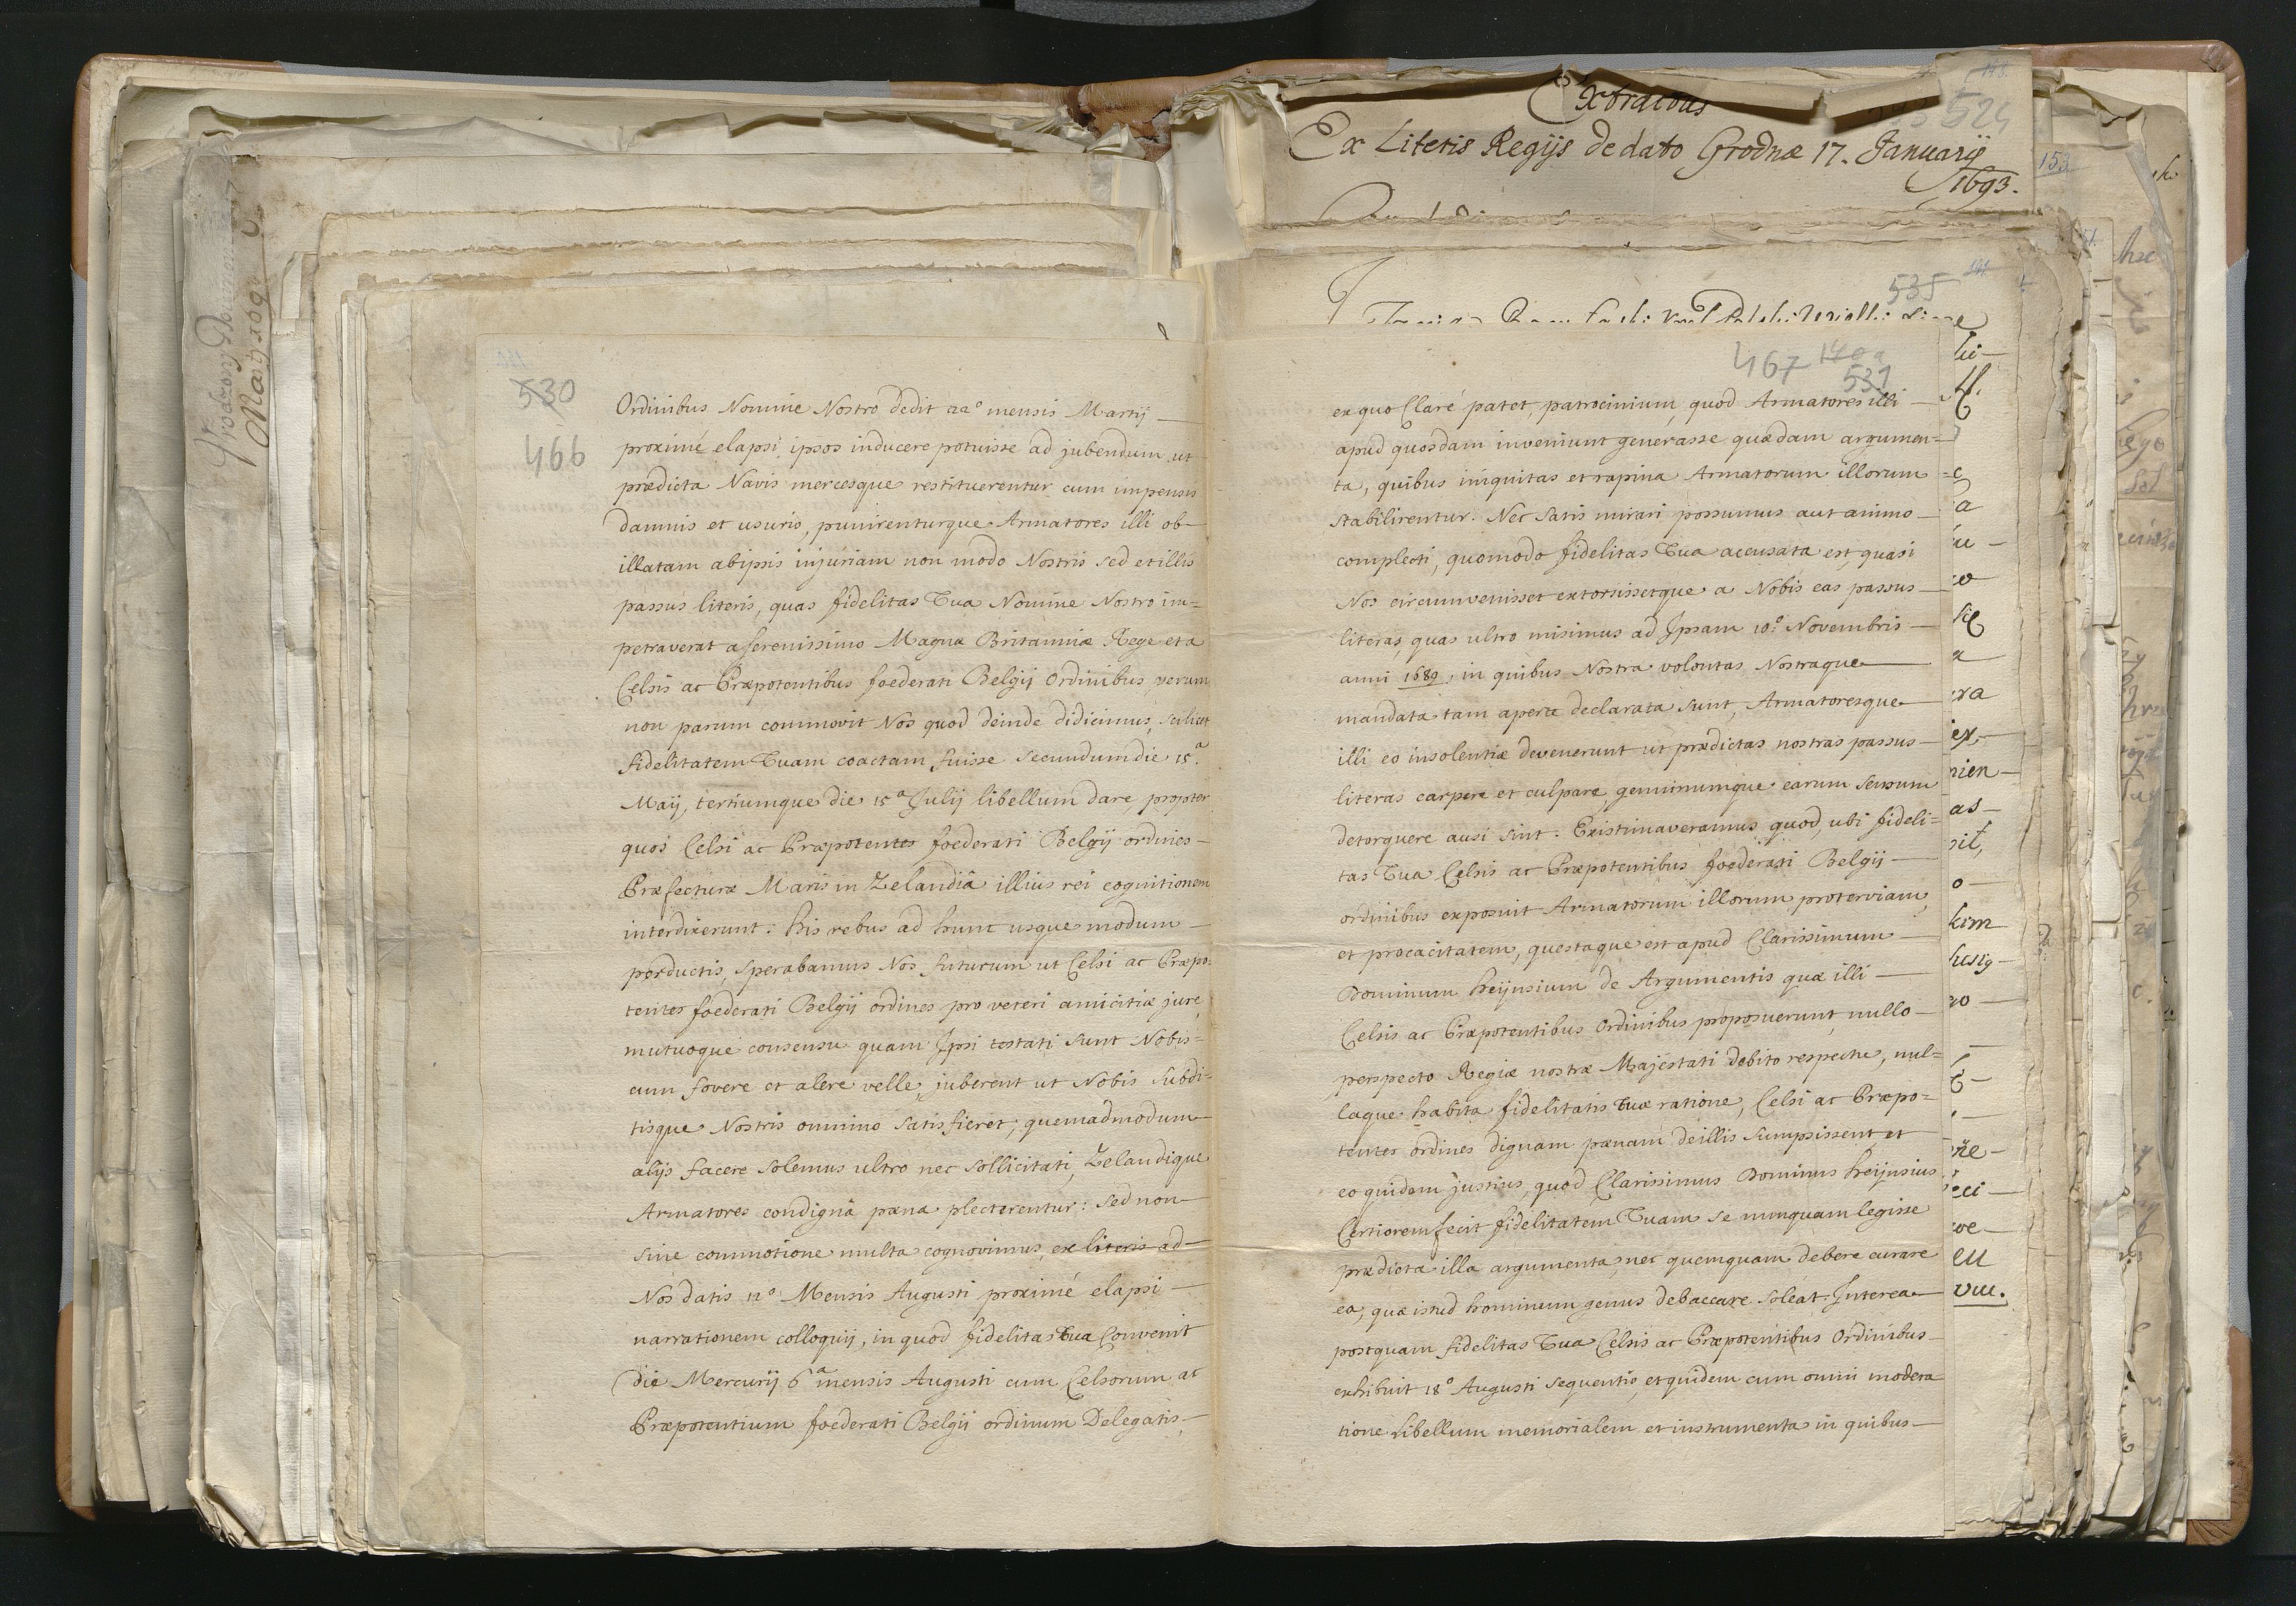 530
466
Ordinibus Nomine Nostro dedit 22º mensis Martij
proximé elapsi, ipsos inducere potuisse ad jubendum, ut
prædicta Navis mercesque restituerentur cum impensis
damnis et usuris, punirenturque Armatores illi ob-
illatam ab ipsis injuriam non modo Nostris sed et illis
passus literis, quas fidelitas Tua Nomine Nostro im=
petraverat a serenissimo Magnæ Britanniæ Rege et a
Celsis ac Præpotentibus foederati Belgij Ordinibus, verum
non parum commovit Nos quod deinde didicimus, scilicet
fidelitatem Tuam coactam fuisse secundum die 15ª
Maij, tertiumque die 15ª Julij libellum dare, propter
quos Celsi ac Præpotentes foederati Belgij ordines
Præfecturæ Maris in Zelandiâ illius rei cognitionem
interdixerunt: his rebus ad hunc usque modum
productis, sperabamus Nos futurum ut Celsi ac Præpo=
tentes foederati Belgij ordines pro veteri amicitiæ jure,
mutuoque consensu quam Ipsi testati sunt Nobis=
cum fovere et alere velle, juberent ut Nobis Subdi=
tisque Nostris omnino satisfieret, quemadmodum
alijs facere solemus ultro nec sollicitati, Zelandique
Armatores condignâ pæna plecterentur: sed non
sine commotione multa cognovimus, ex literis ad
Nos datis 12º Mensis Augusti proximé elapsi
narrationem colloquij, in quod fidelitas Tua Convenit
die Mercurij 6ª mensis Augusti cum Celsorum ac
Præpotentium foederati Belgij ordinum Delegatis,
Extractus
Ex Literis Regijs de dato Grodnæ 17. Januarij
1693.
524
153
535
467 140a
531
ex quo Claré patet, patrocinium, quod Armatores illi
apud quosdam inveniunt generasse quædam argumen=
ta, quibus iniquitas et rapina Armatorum illorum
stabilirentur. Nec satis mirari possumus aut animo
complecti, quomodo fidelitas Tua accusata est, quasi
Nos circumvenisset extorsissetque a Nobis eas passus
literas, quas ultro misimus ad Ipsam 10º Novembris
anni 1689, in quibus Nostra voluntas Nostraque
mandata tam aperte declarata sunt, Armatoresque
illi eo insolentiæ devenerunt ut prædictas nostras passus
literas carpere et culpare, genuinumque earum sensum
detorquere ausi sint. Existimaveramus quod, ubi fideli=
tas Tua Celsis ac Præpotentibus foederati Belgij
ordinibus exposuit Armatorum illorum proterviam,
et procacitatem, questaque est apud Clarissimum
Dominum heijnsium de Argumentis quæ illi
Celsis ac Præpotentibus Ordinibus proposuerunt, nullo
perspecto Regiæ nostræ Majestati debito respectu, nul=
laque habita fidelitatis tuæ ratione, Celsi ac Præpo=
tentes ordines dignam pænam de illis sumpsissent, et
eo quidem justius, quod Clarissimus Dominus heijnsius
Certiorem fecit fidelitatem Tuam se nunquam legisse
prædicta illa argumenta, nec quemquam debere curare
ea, quæ istud hominum genus debaccare soleat. Interea
postquam fidelitas Tua Celsis ac Præpotentibus Ordinibus
exhibuit 18º Augusti sequentis, et quidem cum omni modera
tione Libellum memorialem et instrumenta in quibus